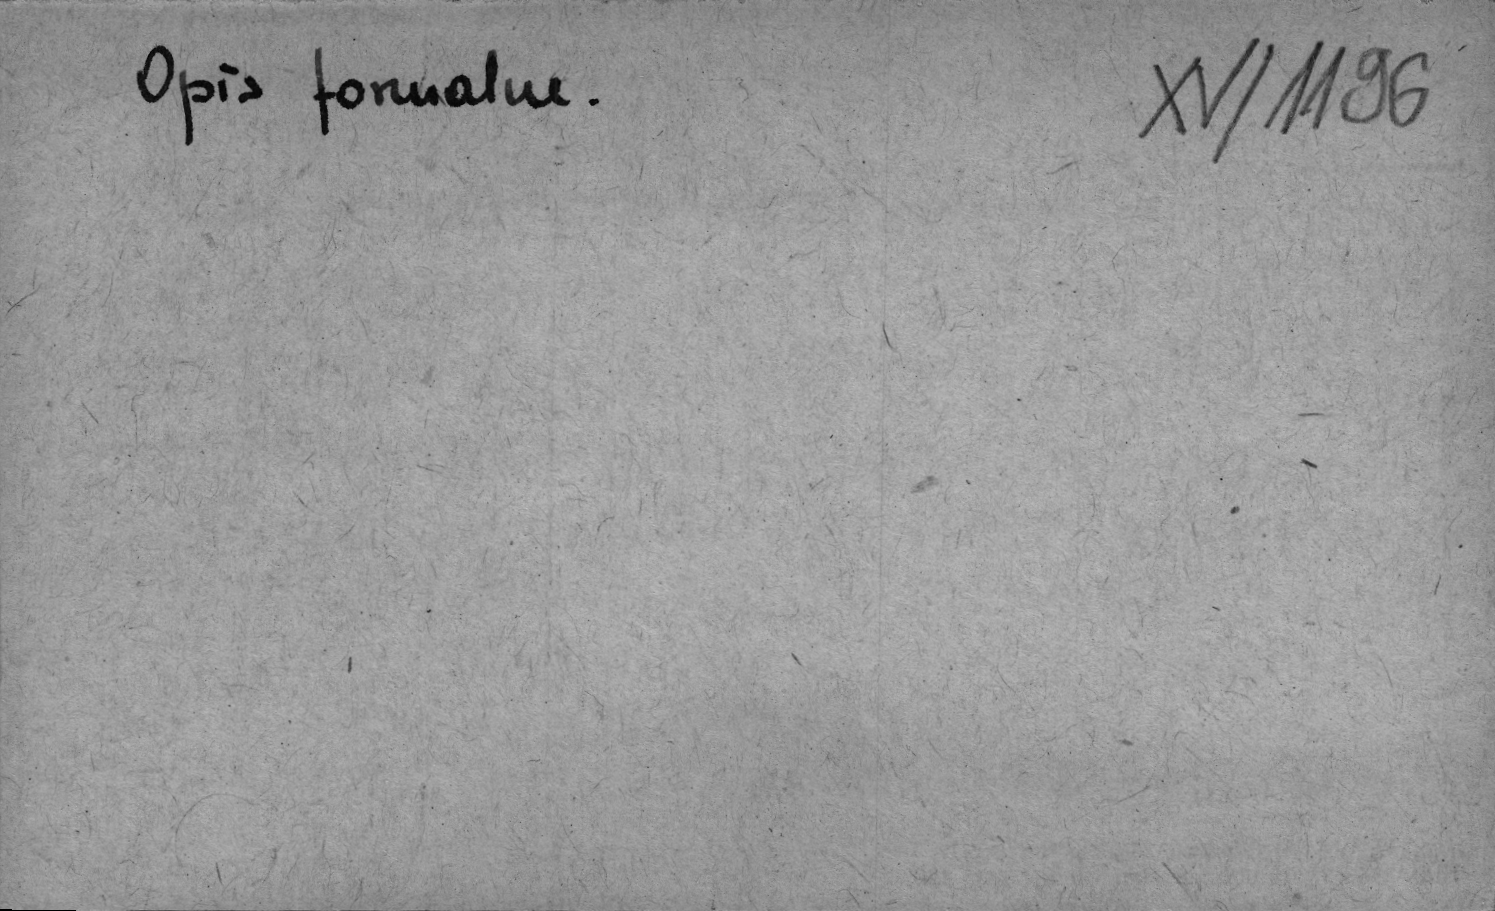 Opis formalne.
XV/1196